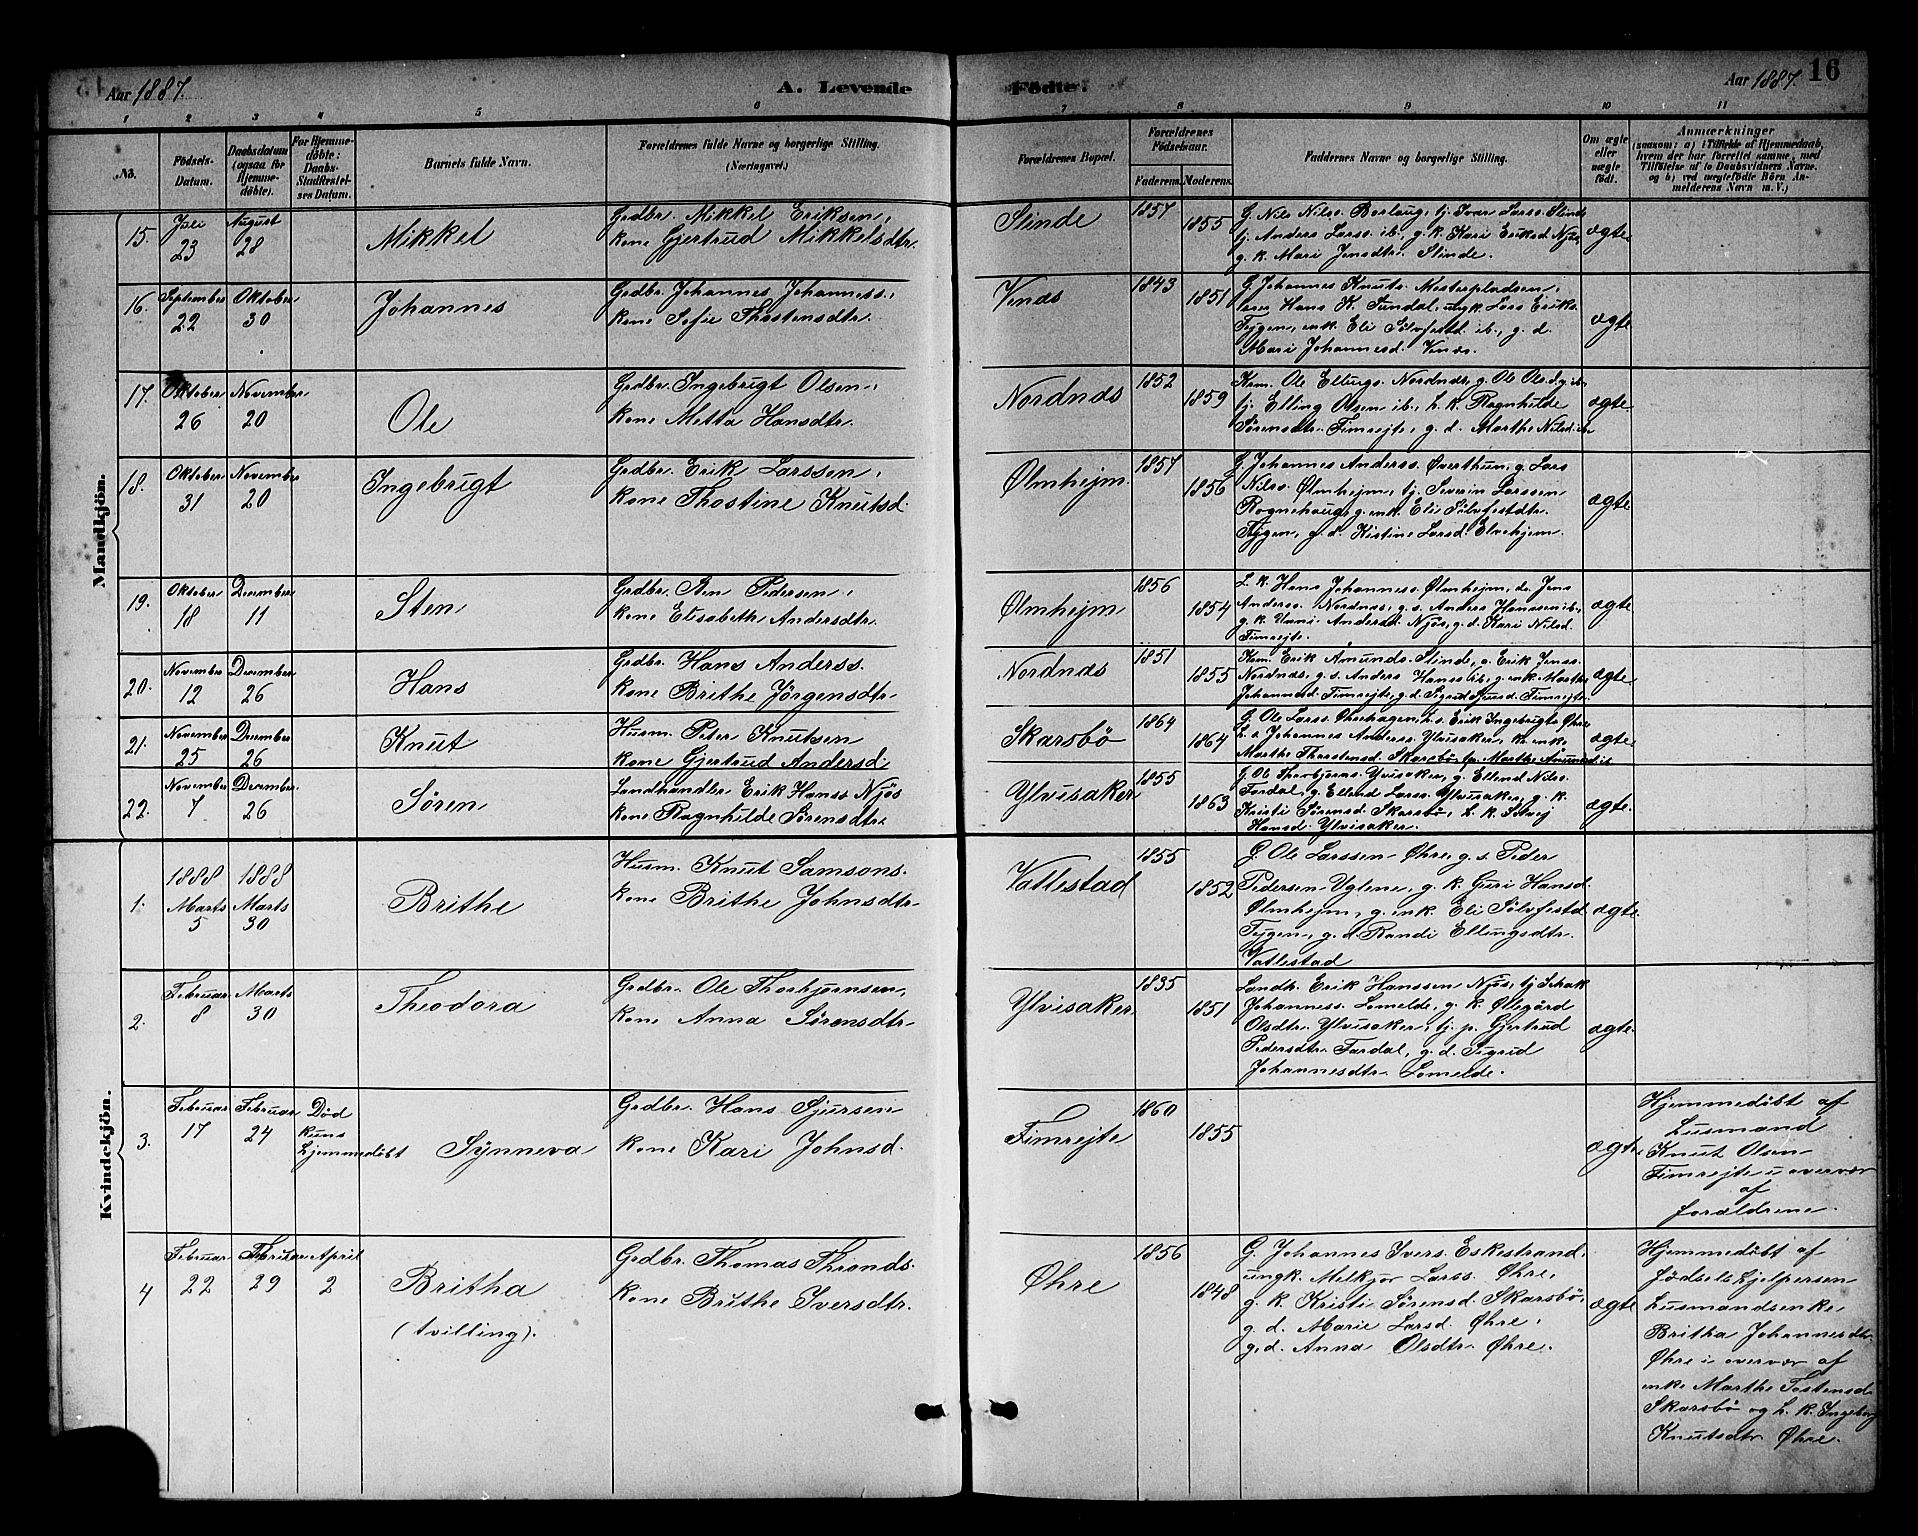 Aar 1887. A. Levende Fødte. Aar 1887. 16
1 2 3 4 5 6 7 8 9 10 11
No. Fødsels-Datum. Daabsdatum (ogsaa for Hjemmedøbte). For Hjemmedøbte: Daabs-Stadfæstelses Datum. Barnets fulde Navn. Forældrenes fulde Navne og borgerlige Stilling. (Næringsvei.) Forældrenes Bopæl. Forældrenes Fødselsaar. Faderens. Moderens. Faddernes Navne og borgerlige Stilling. Om ægte eller uægte født. Anmærkninger (saasom: a) i Tilfælde af Hjemmedaab, hvem der har forrettet samme, med Tilføielse af to Daabsvidners Navne, og b) ved uægtefødte Børn Anmelderens Navn m. V.)
Mandkjön.
15. Juli 23 August 28 Mikkel Grdbr. Mikkel Eriksen, kone Gjertrud Mikkelsdtr. Slinde 1857 1855 G. Nils Nilss. Borlaug, tj. Ivar Larss. Slinde
tj. Anders Larss. ib., g. k. Kari Eriksd. Njøs,
g. k. Mari Jensdtr. Slinde. ægte
16. September 22 Oktober 30 Johannes Grdbr. Johannes Johanness., kone Sofie Thostensdtr. Venæs 1843 1851 G. Johannes Knuts. Mosterpladsen,
lærer Hans K. Sundal, ungk. Lars Eriks.
Tejgen, enk. Eli Sølvfestd ib., g. d.
Mari Johannesd. Venæs. ægte
17. Oktober 26 November 20 Ole Grdbr. Ingebrigt Olsen, kone Metta Hansdtr. Nordnæs 1852 1859 Krm. Ole Ellings. Nordnæs, g. Ole Ols. d. y. ib.
tj. Elling Olsen ib., h. k. Ragnhilde
Sørensdtr. Fimrejte, g. d. Marthe Nilsd. ib. ægte
18. Oktober 31 November 20 Ingebrigt Grdbr. Erik Larssen, kone Thostine Knutsd. Ølmhejm. 1857 1856 G. Johannes Anderss. Øverthun, g. Lars
Nilss. Ølmhejm, tj. Severin Larssen
Rognehaug, g. enk. Eli Sølvfestdtr.
Tejgen, g. d. Kistine Larsd. Elvehjem. ægte
19. Oktober 18 December 11 Sten Grdbr. Sten Pedersen, kone Elisabeth Andersdtr. Ølmhejm 1856 1854 L. k. Hans Johanness. Ølmhejm, do. Jens
Anderss. Nordnæs, g. s. Anders Hanssen ib.,
g. k. Unni Andersd. Njøs, g. d. Kari Nilsd.
Fimrejte. ægte
20. November 12 December 26 Hans Grdbr. Hans Anderss. kone Brithe Jørgensdtr. Nordnæs 1851 1855 Krm. Erik Amunds. Slinde, g. Erik Jenss.
Nordnæs, g. s. Anders Hanss. ib., g. enk. Marthe
Johannesd. Fimrejte, g. d. Sigrid Sjursd. Fimrejte ægte
21. November 25 December 26 Knut Husm. Peter Knutsen kone Gjertrud Andersd. Skarsbø 1864 1864 G. Ole Larss. Øhrehagen, h. s. Erik Ingebrigts. Øhre
h. s. Johannes Anderss. Ylvisaker, kr. enk.
Marthe Thorstensd. Skarsbø, Marthe Amundsd. ib. ægte
22. November 7 December 26 Søren Landhandler Erik Hanss Njøs kone Ragnhilde Sørensdtr. Ylvisaker 1855 1863 G. Ole Thorbjørns. Ylvisaker, g. Ellend Nilss.
Fardal, g. Ellend Larss. Ylvisaker, g. k.
Kristi Sørensd. Skarsbø, h. k. Solvej
Hansd. Ylvisaker. ægte
Kvindekjön.
1. 1888 Marts 5 1888 Marts 30 Brithe Husm. Knut Samsons. kone Brithe Johnsdtr. Vatlestad 1855 1852 G. Ole Larssen Øhre, g. s. Peder
Pedersen Uglene, g. k. Guri Hansd.
Ølmhejm, g. enk. Eli Sølvfestd
Tejgen, g. d. Randi Ellingsdtr.
Vatlestad ægte
2. Februar 8 Marts 30 Theodora Grdbr. Ole Thorbjørnsen, kone Anna Sørensdtr. Ylvisaker 1835 1851 Landh. Erik Hanssen Njøs, tj. Isak
Johanness. Lomelde, g. k. Øllegård
Olsdtr. Ylvisaker, tj. p. Gjertrud
Pedersdtr. Fardal, g. d. Sigrid
Johannesdtr. Lomelde. ægte
3. Februar 17 Februar 24 Död kuns hjemmedöbt Synneva Grdbr. Hans Sjursen kone Kari Johnsd. Fimrejte 1860 1855 ægte Hjemmedöbt af
husmand
Knut Olsen
Fimrejte i overvær
af
forældrene.
4 Februar 22 Februar 29 April 2 Britha (tvilling). Grdbr. Thomas Thronds. kone Brithe Iversdtr. Øhre 1856 1848 G. Johannes Ivers. Eskestrand,
ungk. Melkjor Larss. Øhre,
g. k. Kristi Sørensd. Skarsbø,
g. d. Marie Larsd. Øhre,
g. d. Anna Olsdtr. Øhre. ægte Hjemmedöbt af
födselshjelpersen
husmandsenke
Britha Johannesdtr.
Øhre i overvær af
enke Marthe Tostensd.
Skarsbø og h. k. Ingeborg
Knutsdtr. Øhre.